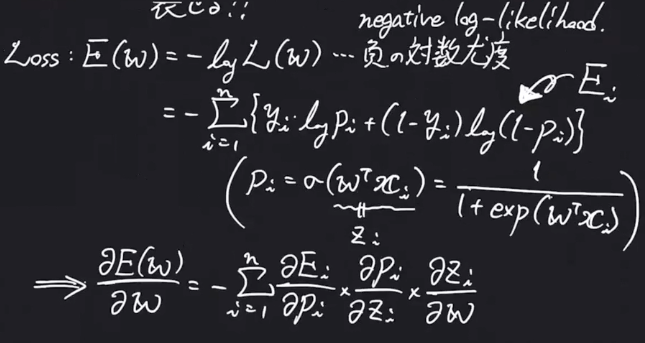 negative log-likelihood.
Loss: E(w) = -log L(w) … 負の対数尤度
= -∑_{i=1}^{n} {y_i·log p_i + (1-y_i) log(1-p_i)} E_i
(p_i = σ(wᵀx_i) = 1 / (1 + exp(wᵀx_i)))
z_i
⟹ ∂E(w)/∂w = -∑_{i=1}^{n} ∂E_i/∂p_i × ∂p_i/∂z_i × ∂z_i/∂w